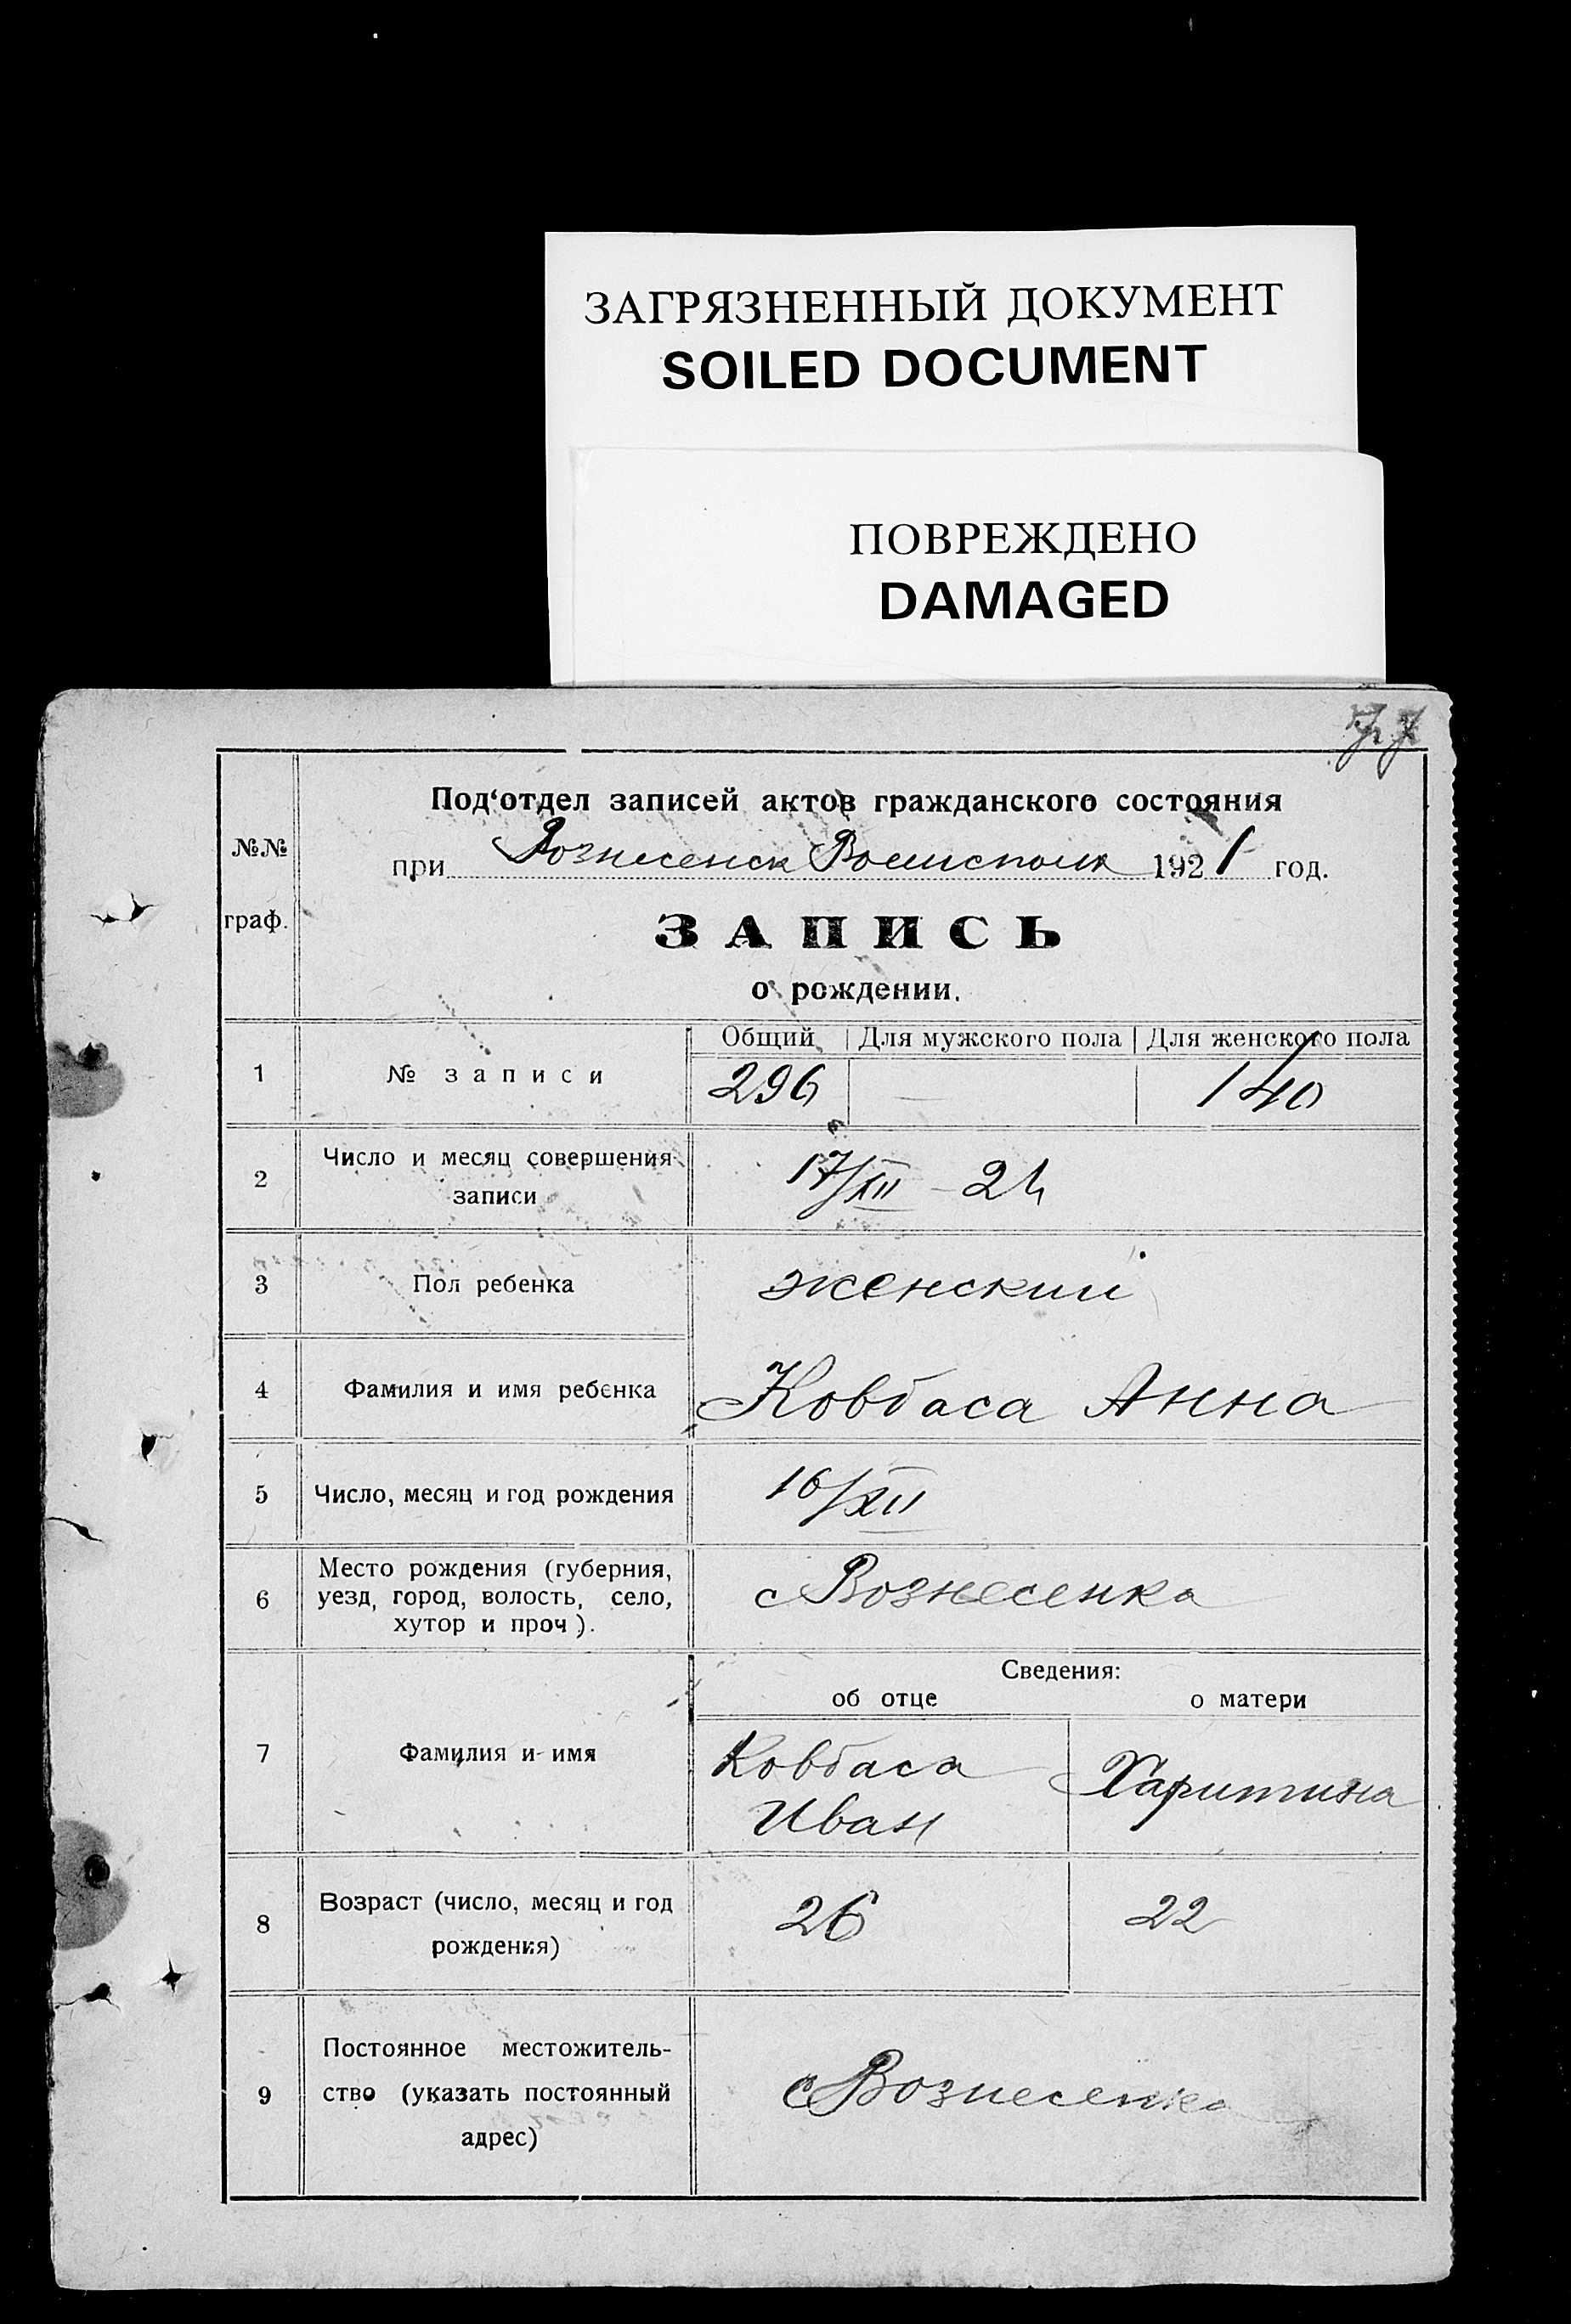 ЗАГРЯЗНЕННЫЙ ДОКУМЕНТ
SOILED DOCUMENT
ПОВРЕЖДЕНО
DAMAGED
№№
граф.
Под‘отдел записей актов гражданского состояния
при Вознесенск 1921 год.
ЗАПИСЬ
о рождении.
Общий Для мужского пола Для женского пола
1 № записи 296 — 140
2 Число и месяц совершения
записи
17/XII – 21
3 Пол ребенка женский
4 Фамилия и имя ребенка Ковбаса Анна
5 Число, месяц и год рождения 16/XII
6 Место рождения (губерния,
уезд, город, волость, село,
хутор и проч).
с Вознесенка
Сведения:
об отце о матери
7 Фамилия и имя
Ковбаса
Иван
Харитина
8 Возраст (число, месяц и год
рождения)
26 22
9 Постоянное местожитель-
ство (указать постоянный
адрес)
с Вознесенка